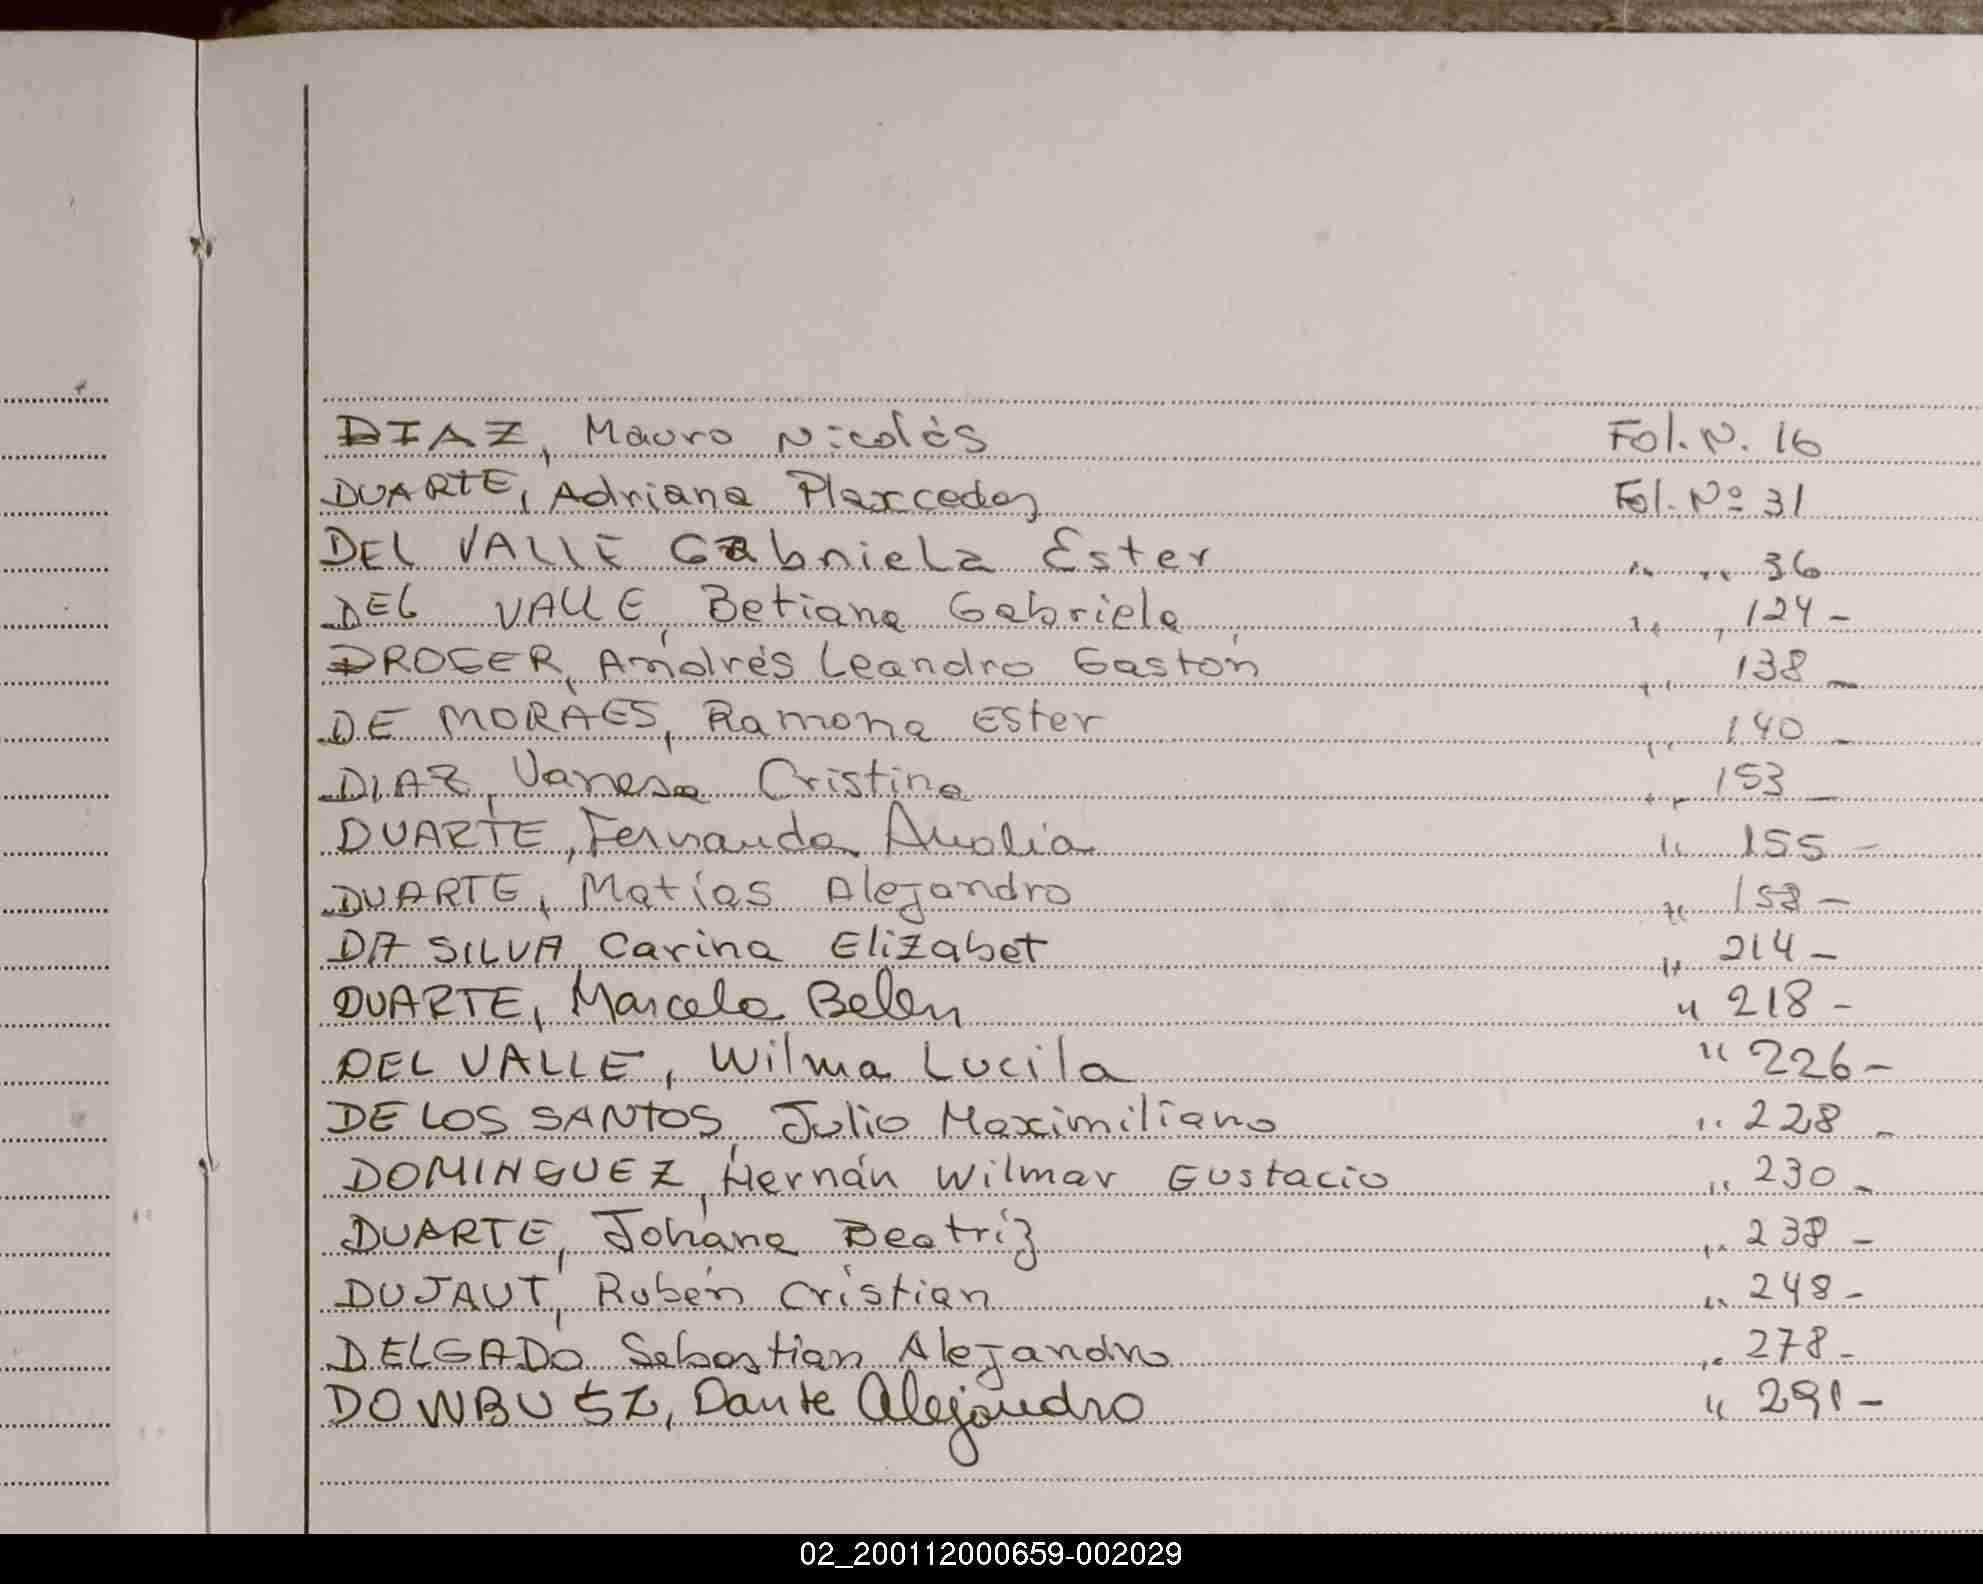 DIAZ, Mauro Nicolás Fol. N. 16
DUARTE, Adriana Plaxcedes Fol. Nº 31
DEL VALLE Gabriela Ester " " 36
DEL VALLE, Betiana Gabriela " " 124 -
DROGER, Andrés Leandro Gastón " " 138 -
DE MORAES, Ramona Ester " " 140 -
DIAZ, Vanesa Cristina " " 153 -
DUARTE, Fernanda Analia " 155 -
DUARTE, Matías Alejandro " 158 -
DA SILVA, Carina Elizabet " 214 -
DUARTE, Marcela Belen " 218 -
DEL VALLE, Wilma Lucila " 226 -
DE LOS SANTOS, Julio Maximiliano " 228 -
DOMINGUEZ, Hernán Wilmar Eustacio " 230 -
DUARTE, Johana Beatríz " 238 -
DUJAUT, Rubén Cristian " 248 -
DELGADO Sebastian Alejandro " 278 -
DOWBUSZ, Dante Alejandro " 291 -
02_200112000659-002029